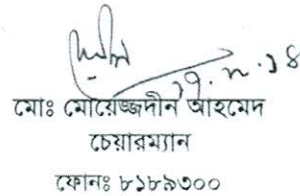 মোঃ মোয়েজ্জদীন আহমেদ
চেয়ারম্যান
ফোনঃ ৮১৮৯৩০০